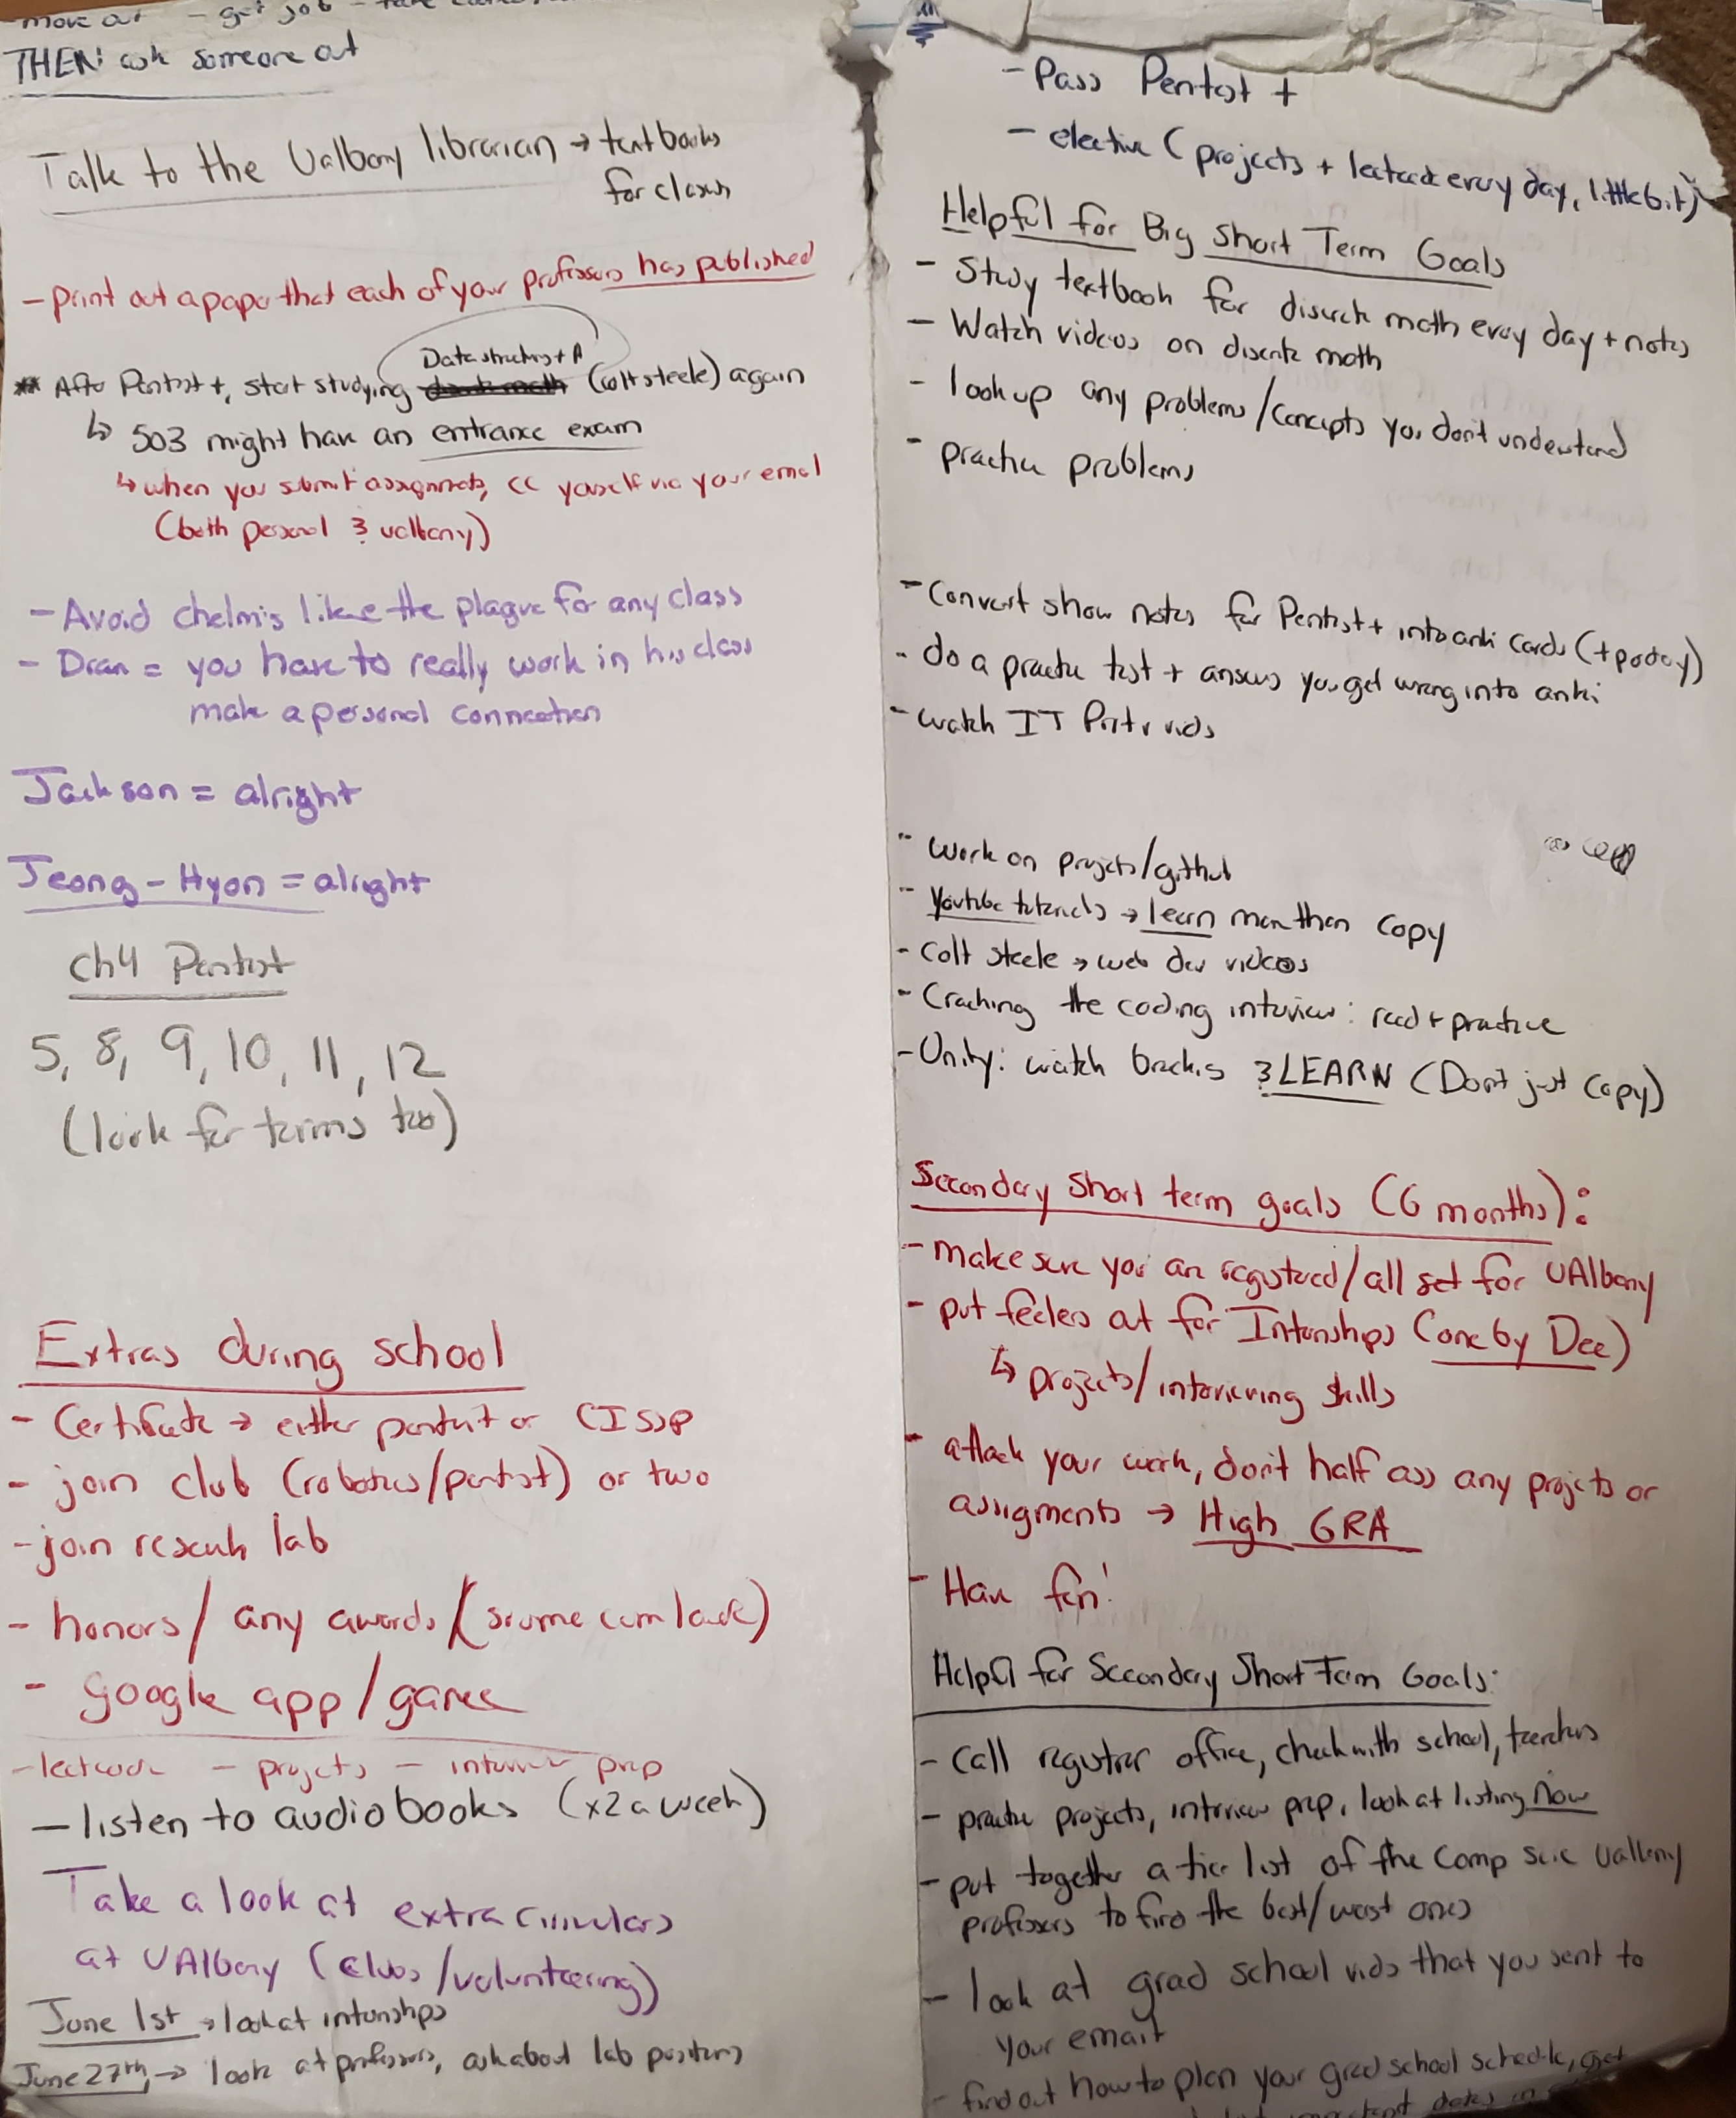 - move out - get job - take
THEN: ask someone out
Talk to the Ualbany librarian → textbooks
for classes
- print out a paper that each of your professors has published
Data structures + A
** After Pentest +, start studying (colt steele) again
↳ 503 might have an entrance exam
↳ when you submit assignments, CC yourself via your email
(both personal & ualbany)
- Avoid chelmis like the plague for any class
- Dean = you have to really work in his class
make a personal connection
Jackson = alright
Jeong-Hyon = alright
Ch4 Pentest
5, 8, 9, 10, 11, 12
(look for terms too)
Extras during school
- Certificate → either pentest or CISSP
- join club (robotics/pentest) or two
- join research lab
- honors / any awards (summe cum laude)
- google app/game
- leetcode - projects - interview prep
- listen to audiobooks (x2 a week)
Take a look at extracirriculars
at UAlbany (clubs/volunteering)
June 1st → look at internships
June 27th → look at professors, ask about lab positions
- Pass Pentest +
- elective (projects + leetcode every day, little bit)
Helpful for Big Short Term Goals
- Study textbook for discrete math every day + notes
- Watch videos on discrete math
- look up any problems/concepts you don't understand
- practice problems
- Convert show notes for Pentest+ into anki cards (+ poday)
- do a practice test + answers you get wrong into anki
- watch IT Pro tv vids
- work on projects/github
- Youtube tutorials → learn more than copy
- Colt Steele → web dev videos
- Cracking the coding interview: read + practice
- Unity: watch brackis & LEARN (Don't just copy)
Secondary Short term goals (6 months):
- make sure you are registered/all set for UAlbany
- put feelers out for Internships (one by Dec)
↳ projects/interviewing skills
- attack your work, don't half ass any projects or
assigments → High GPA
- Have fun!
Helpful for Secondary Short Term Goals:
- Call registrar office, check with school, teachers
- practice projects, interview prep, look at listing now
- put together a tier list of the Comp scie Ualbany
professors to find the best/worst ones
- look at grad school vids that you sent to
your email
- find out how to plan your grad school schedule, get
important dates in